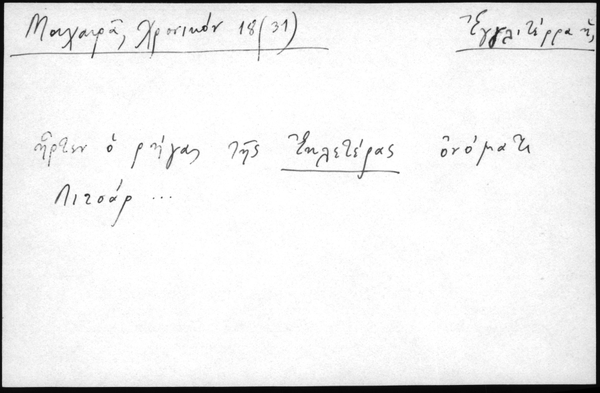 Μαχαιρᾶ, Χρονικόν 18 (31)
Ἐγγλιτέρρα ἡ
ἦρτεν ὁ ρήγας τῆς Ἐγκλετέρας ὀνόματι
Λιτσάρ ...